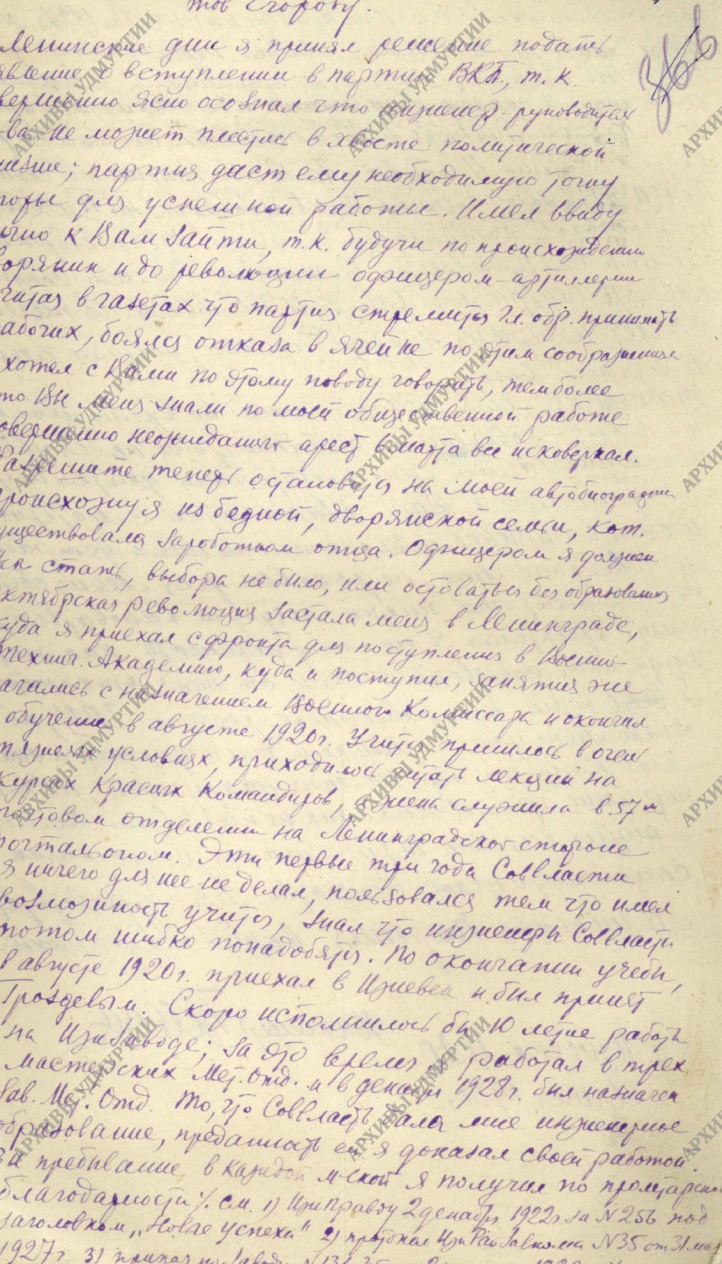 тов Егорову.
366
Ленинские дни я принял решение подать
явление о вступлении в партию ВКП, т.к.
вершенно ясно осознал что инженер-руководитель
ва не может плестись в хвосте политической
жизни; партия даст ему необходимую точку
поры для успешной работы. Имел ввиду
ично к Вам зайти, т.к. будучи по происхождению
ворянин и до революции офицером-артиллерии
читая в газетах что партия стремится гл. обр. принимать
абочих, боялся отказа в ячейке по этим соображениям
хотел с Вами по этому поводу говорить, тем более
то Вы меня знали по моей общественной работе
овершенно неожиданный арест 6 марта все исковеркал.
Разрешите теперь остановиться на моей автобиографии
роисхожу я из бедной, дворянской семьи, кот.
уществовала заработком отца. Офицером я должен
стать, выбора не было, или остаться без образования
ктябрская революция застала меня в Ленинграде,
куда я приехал с фронта для поступления в Военно-
технич. Академию, куда и поступил, занятия же
ачались с назначением Военного Комиссара и окончил
обучение в августе 1920г. Учиться пришлось в очень
тяжелых условиях, приходилось читать лекции на
Курсах Красных Командиров, жена служила в 57м
почтовом отделении на Ленинградской стороне
почтальоном. Эти первые три года Соввласти
я ничего для нее не делал, пользовался тем что имел
возможность учиться, знал что инженеры Соввласти
потом шибко понадобятся. По окончании учебы,
в августе 1920г. приехал в Ижевск и был принят
Гроздевым. Скоро исполнилось бы 10 летие работы
на Ижзаводе; за это время я работал в трех
мастерских Мет. Отд. и в декабре 1928г. был назначен
Зав. Мет. Отд. То, что Соввласть дала мне инженерное
образование, преданность ей я доказал своей работой.
За пребывание в каждой м-ской я получил по пролетарской
благодарности /. см. 1) Ижправду 2 декабря 1922г за N256 под
заголовком „Новые успехи" 2) протокол N35 от 31 мая
1927г. 3) приказ по заводу
АРХИВЫ УДМУРТИИ